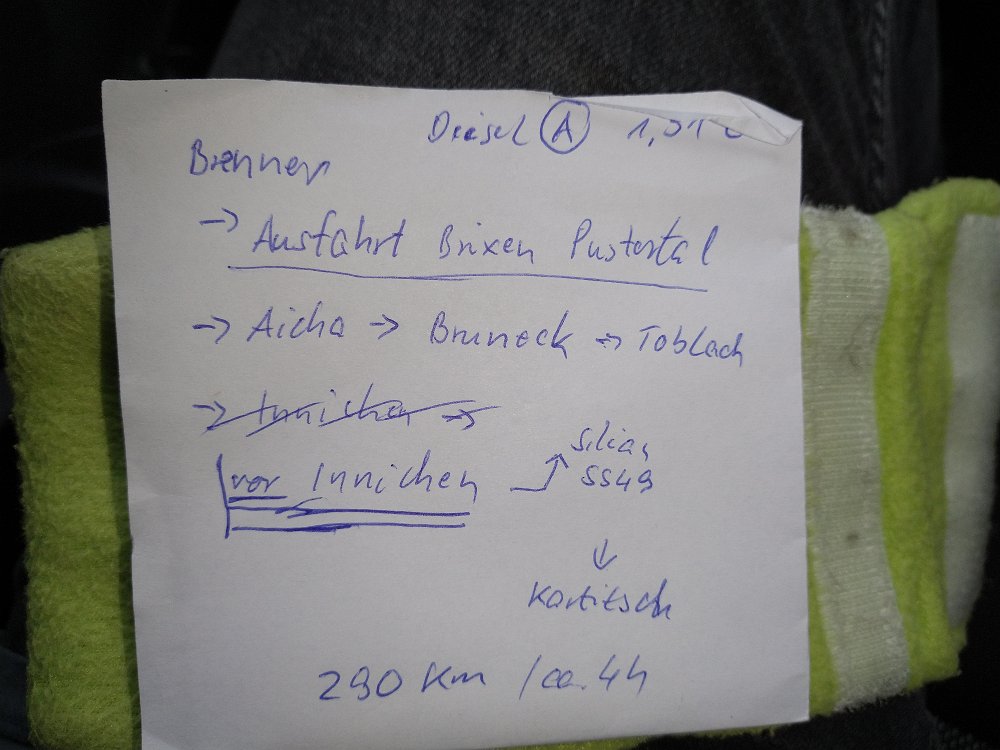 Diesel A 1,51 €
Brenner
→ Ausfahrt Brixen Pustertal
→ Aicha → Bruneck → Toblach
→ Innichen →
vor Innichen
Silian
SS49
↓
Kartitsch
290 Km / ca. 4h